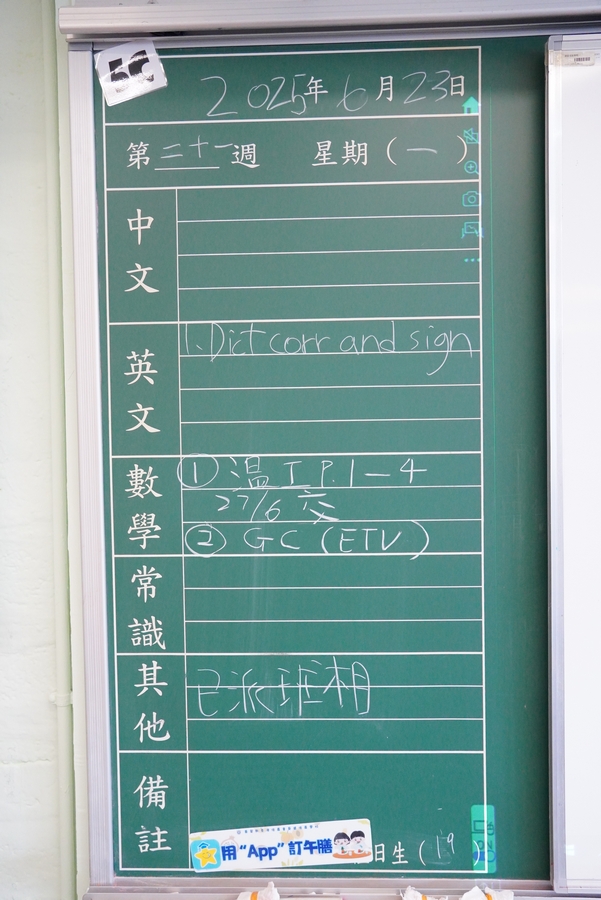 5C
2025年6月23日
第三十一週 星期(一)
中文
英文
1. Dict corr and sign
數學
① 温工 P.1-4
27/6 交
② GC (ETV)
常識
其他
已派班相
備註
用“App”訂午膳
日生(19)